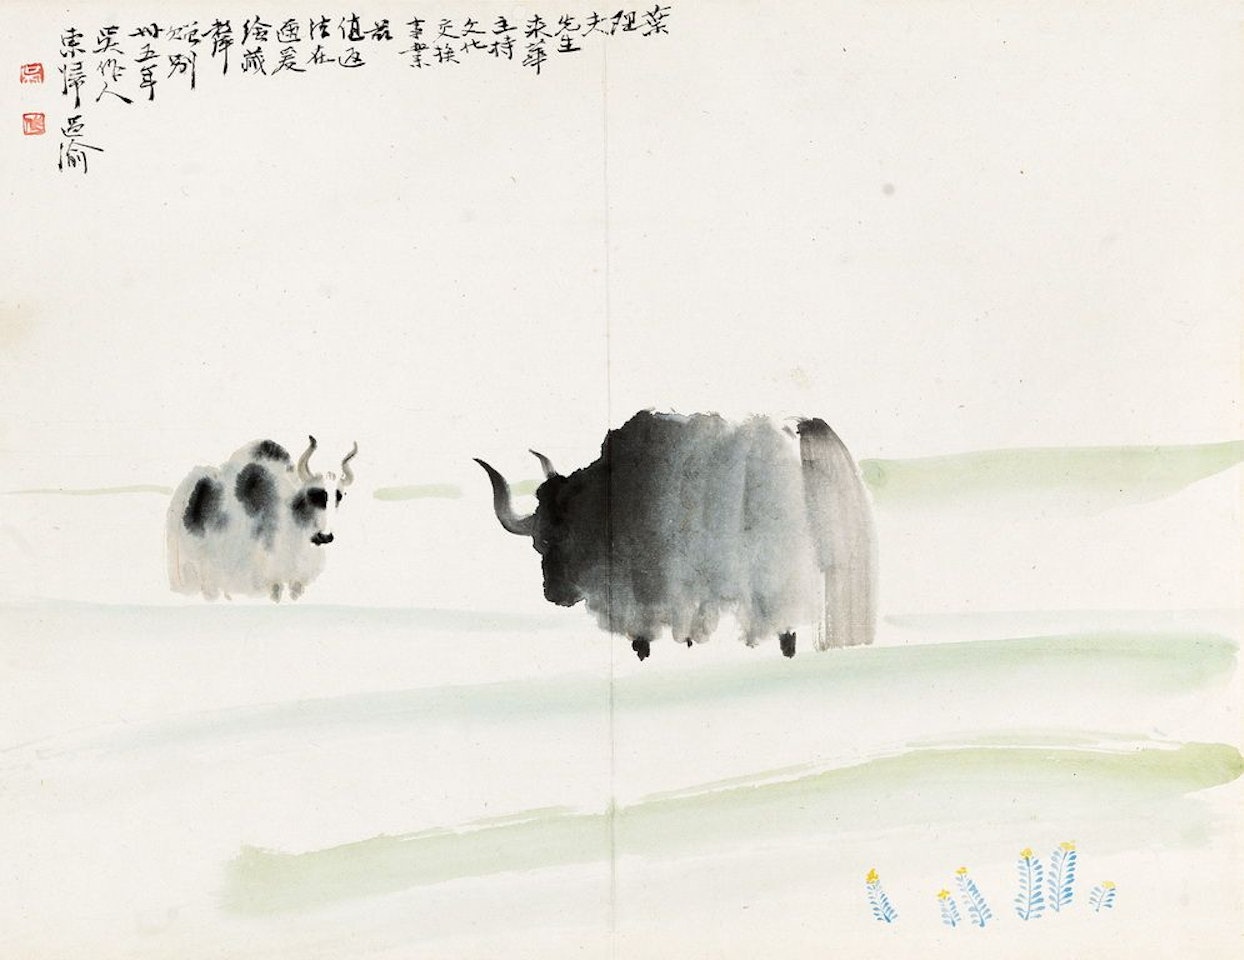 葉
理
夫
先生
来華
主持
文化
交换
事業
茲
值返
法在
邇爰
繪藏
犛
贈别
卅五年
吳作人
東歸過渝
吳